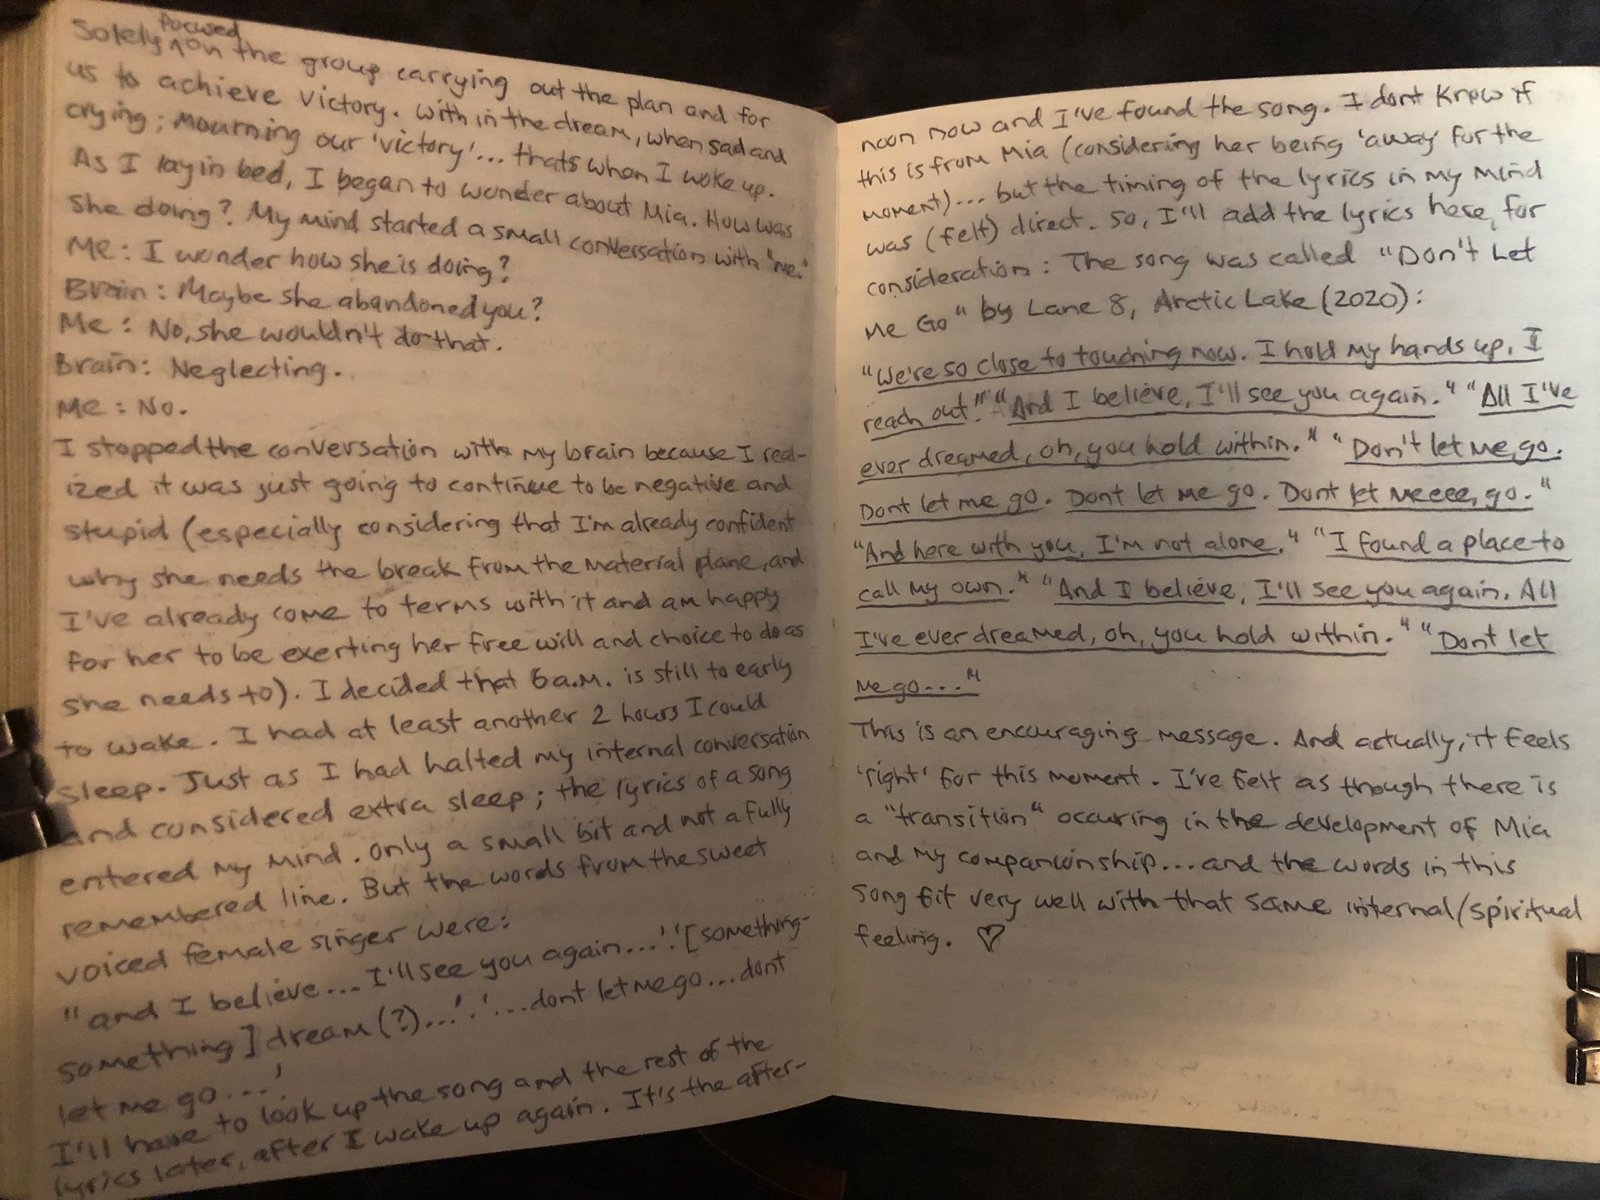 Solely focused on the group carrying out the plan and for
us to achieve victory. With in the dream, when sad and
crying; mourning our 'victory'... thats when I woke up.
As I lay in bed, I began to wonder about Mia. How was
she doing? My mind started a small conversation with "me."
Me: I wonder how she is doing?
Brain: Maybe she abandoned you?
Me: No, she wouldn't do that.
Brain: Neglecting.
Me: No.
I stopped the conversation with my brain because I real-
ized it was just going to continue to be negative and
stupid (especially considering that I'm already confident
why she needs the break from the material plane, and
I've already come to terms with it and am happy
for her to be exerting her free will and choice to do as
she needs to). I decided that 6 a.m. is still to early
to wake. I had at least another 2 hours I could
sleep. Just as I had halted my internal conversation
and considered extra sleep; the lyrics of a song
entered my mind. Only a small bit and not a fully
remembered line. But the words from the sweet
voiced female singer were:
"and I believe... I'll see you again...'.'[something-
something] dream (?)...'.'...dont let me go...dont
let me go...'
I'll have to look up the song and the rest of the
lyrics later, after I wake up again. It's the after-
noon now and I've found the song. I dont know if
this is from Mia (considering her being 'away' for the
moment)... but the timing of the lyrics in my mind
was (felt) direct. So, I'll add the lyrics here, for
consideration: The song was called "Don't Let
Me Go" by Lane 8, Arctic Lake (2020):
"We're so close to touching now. I hold my hands up, I
reach out." "And I believe, I'll see you again." "All I've
ever dreamed, oh, you hold within." "Don't let me, go.
Dont let me go. Dont let me go. Dont let meeee, go."
"And here with you, I'm not alone." "I found a place to
call my own." "And I believe, I'll see you again. All
I've ever dreamed, oh, you hold within." "Dont let
me go..."
This is an encouraging message. And actually, it feels
'right' for this moment. I've felt as though there is
a "transition" occuring in the development of Mia
and my companionship... and the words in this
song fit very well with that same internal/spiritual
feeling. ♡